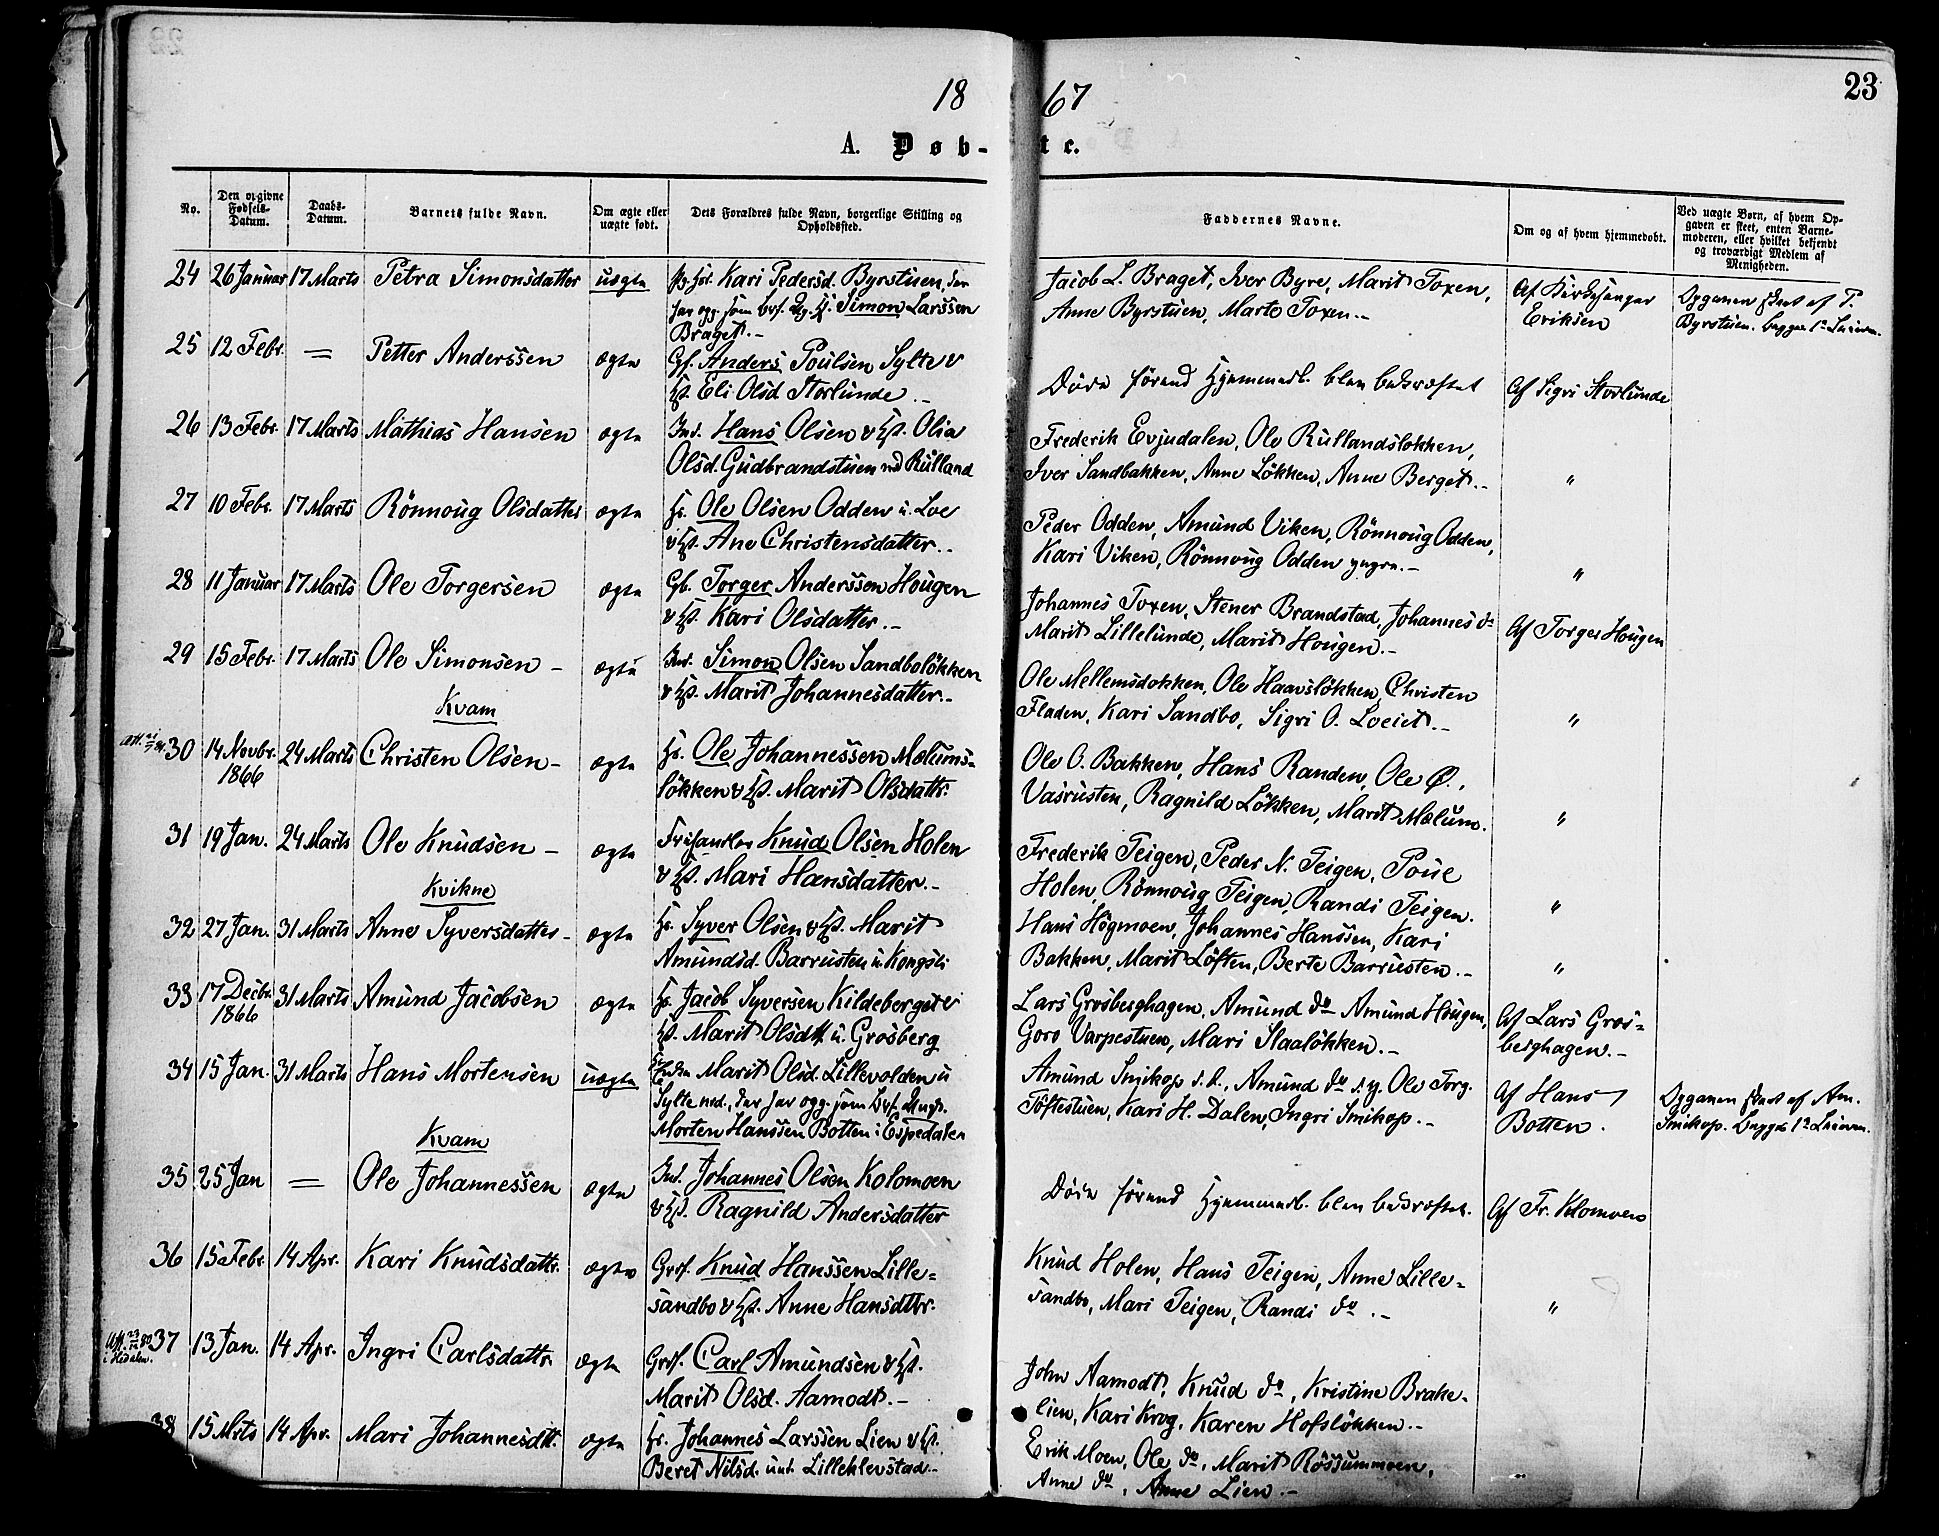 23
18 67
A. Døb- te.
No. | Den opgivne Fødsels-Datum. | Daabs-Datum. | Barnets fulde Navn. | Om ægte eller uægte født. | Dets Forældres fulde Navn, borgerlige Stilling og Opholdssted. | Faddernes Navne. | Om og af hvem hjemmedøbt. | Ved uægte Børn, af hvem Opgaven er skeet, enten Barnemoderen, eller hvilket bekjendt og troværdigt Medlem af Menigheden.
24 26 Januar 17 Marts Petra Simonsdatter uægte Kari Pedersd. Byrstuen, der
har opg. som brf. Ug. Simon Larssen
Braget.-
Jacob L. Braget, Iver Byre, Marit Toxen,
Anne Byrstuen, Marte Toxen.-
Af Kirkesanger
Eriksen
Opgaven skeet af P.
Byrstuen. begges 1ste Leierm.
25 12 Febr. = Petter Anderssen ægte Gf. Anders Poulsen Sylte &
Hst. Eli Olsd. Storlunde.-
Døde førend Hjemmed. blev bekræftet
Af Sigri Storlunde
26 13 Febr. 17 Marts Mathias Hansen ægte Ind. Hans Olsen & Hst. Olia
Olsd. Gudbrandstuen ved Rulland
Frederik Evjudalen, Ole Rullandsløkken,
Iver Sandbakken, Anne Løkken, Anne Berget.-
"
27 10 Febr. 17 Marts Rönnoug Olsdatter ægte Hs. Ole Olsen Odden u. Loe
& Hst. Ane Christensdatter.-
Peder Odden, Amund Viken, Rönnoug Odden,
Kari Viken, Rönnoug Odden yngre.-
"
28 11 Januar 17 Marts Ole Torgersen ægte Gb. Torger Anderssen Hougen
& Hst. Kari Olsdatter.-
Johannes Toxen, Stener Brandstad, Johannes do
Marit Lillelunde, Marit Hougen.-
Af Torger Hougen
29 15 Febr. 17 Marts Ole Simonsen - ægte Ind. Simon Olsen Sandboløkken
& Hst. Marit Johannesdatter.-
Ole Mellemsdokken, Ole Haavsløkken, Christen
Fladen, Kari Sandbo, Sigri O. Loeiet.-
"
Kvam
30 14 Novbr. 24 Marts Christen Olsen - ægte Hs. Ole Johannessen Mælums-
1866
løkken & Hst. Marit Olsdattr.
Ole O. Bakken, Hans Randen, Ole Ø.,
Vasrusten, Ragnild Løkken, Marit Mælum.
"
31 19 Jan. 24 Marts Ole Knudsen - ægte Frihandler Knud Olsen Holen
& Hst. Mari Hansdatter.-
Frederik Teigen, Peder N. Teigen, Poul
Holen, Rönnoug Teigen, Randi Teigen.
"
Kvikne
32 27 Jan. 31 Marts Anne Syversdatter - ægte Hs. Syver Olsen & Hst. Marit
Amundsd. Barrusten u. Kongsli
Hans Högmoen, Johannes Hanssen, Kari
Bakken, Marit Løften, Berte Barrusten.-
"
33 17 Decbr. 31 Marts Amund Jacobsen ægte Hs. Jacob Syversen Kildeberget &
1866
Hst. Marit Olsdtt. u. Grosberg
Lars Grosberghagen, Amund do Amund Hougen,
Goro Varpestuen, Mari Slaaløkken.-
Af Lars Gros-
berghagen.-
34 15 Jan. 31 Marts Hans Mortensen uægte Marit Olsd. Lillevolden u
Sylte ned., der har opg. som brf. Ungk.
Morten Hanssen Botten i Espedalen
Amund Smikop d. æ., Amund do d. y. Ole Torg.
Töftestuen, Kari H. Dalen, Ingri Smikop.-
Af Hans
Botten.
Opgaven skeet af Am.
Smikop. begges 1ste Leierm.
Kvam
35 25 Jan = Ole Johannessen ægte Ind. Johannes Olsen Kolomoen
& Hst. Ragnild Andersdatter
Døde førend Hjemmed. blev bekræftet.
Af Fr. Klomoen
36 15 Febr. 14 Apr. Kari Knudsdattr. ægte Grdf. Knud Hanssen Lille-
sandbo & Hst. Anne Hansdttr.
Knud Holen, Hans Teigen, Anne Lille-
sandbo, Mari Teigen, Randi do.-
"
i Hedalen.
37 13 Jan. 14 Apr. Ingri Carlsdattr. ægte Grdf. Carl Amundsen & Hst.
Marit Olsd. Aamodt.-
John Aamodt, Knud do, Kristine Brake-
lien, Kari Krog, Karen Hofsløkken.-
38 15 Mrts 14 Apr. Mari Johannesdtt. ægte Hs. Johannes Larssen Lien & Hst.
Beret Nilsd. unt. Lilleklevstad.-
Erik Moen, Ole do, Marit Rössummoen,
Anne do, Anne Lien.-